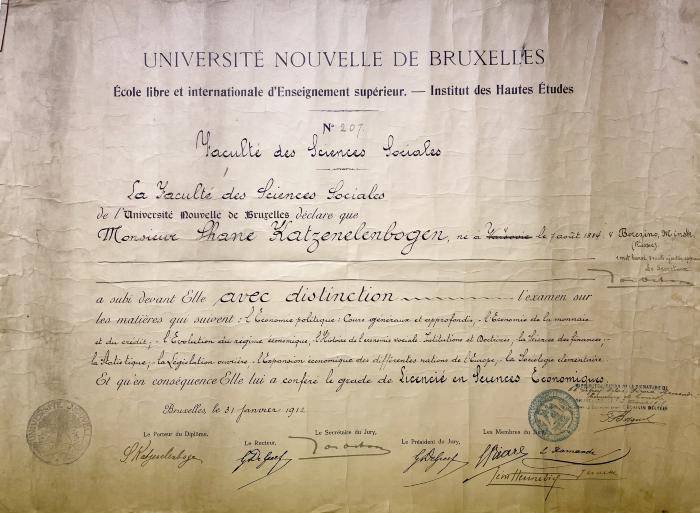 UNIVERSITÉ NOUVELLE DE BRUXELLES
École libre et internationale d'Enseignement supérieur. — Institut des Hautes Études
N° 207
Faculté des Sciences Sociales
La Faculté des Sciences Sociales
de l'Université Nouvelle de Bruxelles déclare que
Monsieur Shane Katzenelenbogen, né à Varsovie le 7 août 1884. à Berezino, Minsk.
(Russie)
a subi devant Elle avec distinction l'examen sur
les matières qui suivent : l'Économie politique : Cours généraux et approfondis, - l'Économie de la monnaie
et du crédit, - l'Évolution du régime économique, l'Histoire de l'économie sociale : Institutions et Doctrines, la Science des finances, -
la Statistique, - la Législation ouvrière. - l'Expansion économique des différentes nations de l'Europe, - la Sociologie élémentaire.
Et qu'en conséquence Elle lui a conféré le grade de Licencié en Sciences Économiques.
Bruxelles, le 31 janvier 1912.
Le Porteur du Diplôme,
Le Recteur,
Le Secrétaire du Jury,
Le Président du Jury,
Les Membres du Jury,
S Katzenelenbogen
G De Greef
G De Greef